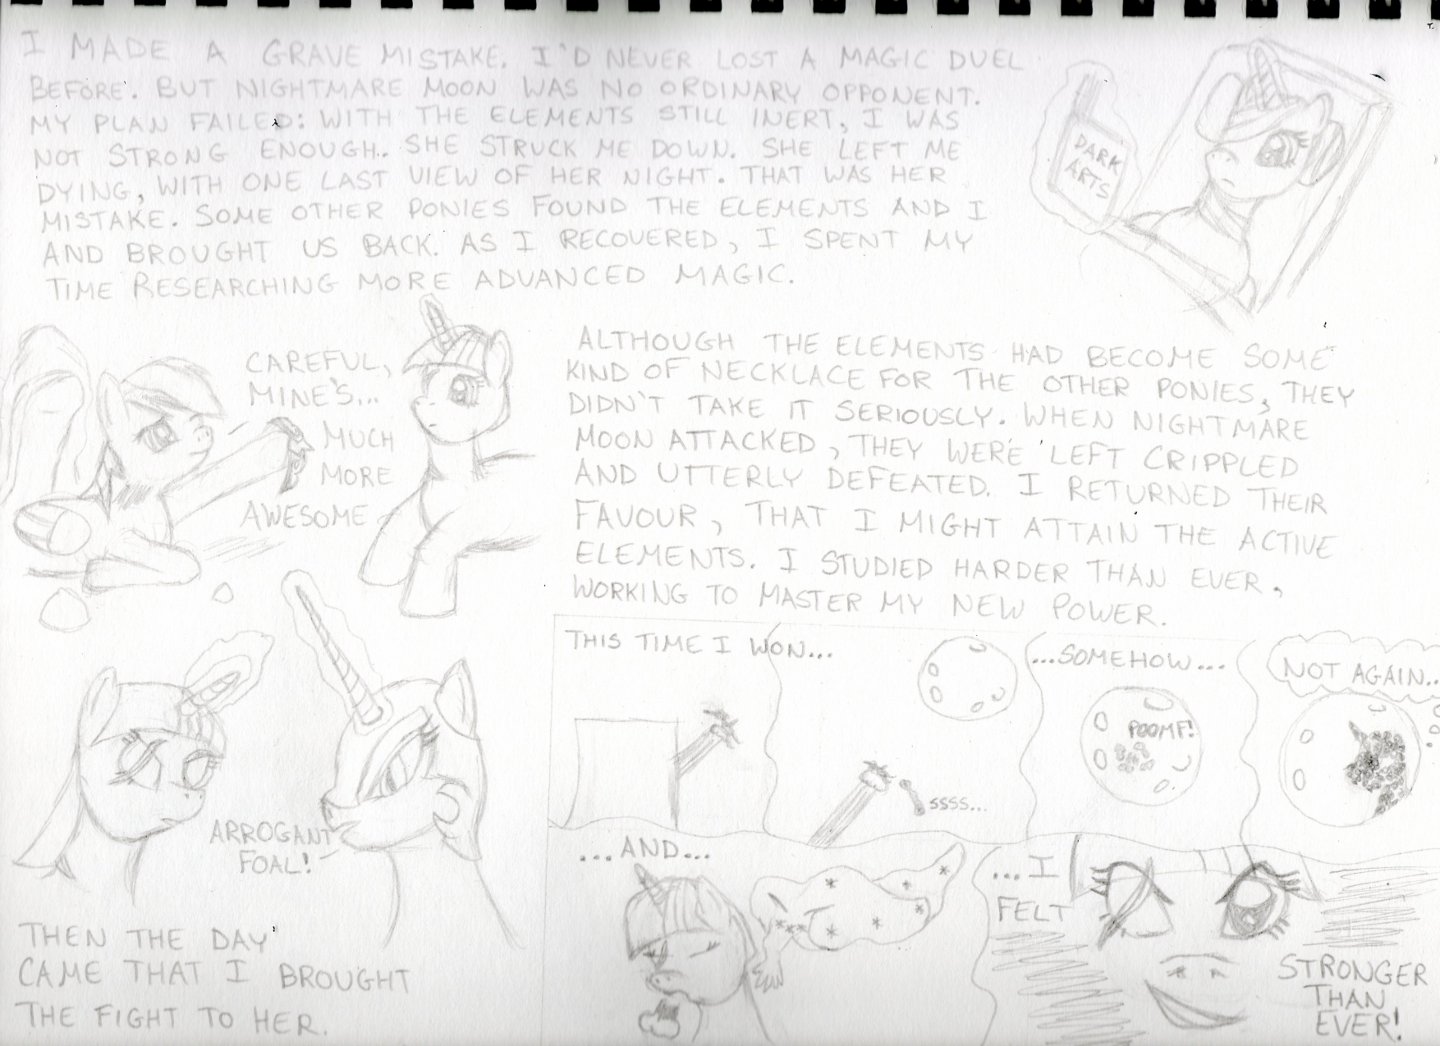 I MADE A GRAVE MISTAKE. I'D NEVER LOST A MAGIC DUEL
BEFORE. BUT NIGHTMARE MOON WAS NO ORDINARY OPPONENT.
MY PLAN FAILED: WITH THE ELEMENTS STILL INERT, I WAS
NOT STRONG ENOUGH. SHE STRUCK ME DOWN. SHE LEFT ME
DYING, WITH ONE LAST VIEW OF HER NIGHT. THAT WAS HER
MISTAKE. SOME OTHER PONIES FOUND THE ELEMENTS AND I
AND BROUGHT US BACK. AS I RECOVERED, I SPENT MY
TIME RESEARCHING MORE ADVANCED MAGIC.
DARK
ARTS
CAREFUL,
MINE'S...
MUCH
MORE
AWESOME
ALTHOUGH THE ELEMENTS HAD BECOME SOME
KIND OF NECKLACE FOR THE OTHER PONIES, THEY
DIDN'T TAKE IT SERIOUSLY. WHEN NIGHTMARE
MOON ATTACKED, THEY WERE LEFT CRIPPLED
AND UTTERLY DEFEATED. I RETURNED THEIR
FAVOUR, THAT I MIGHT ATTAIN THE ACTIVE
ELEMENTS. I STUDIED HARDER THAN EVER,
WORKING TO MASTER MY NEW POWER.
ARROGANT
FOAL!
THEN THE DAY
CAME THAT I BROUGHT
THE FIGHT TO HER.
THIS TIME I WON...
SSSS...
...SOMEHOW...
POOMF!
NOT AGAIN..
...AND...
...I
FELT
STRONGER
THAN
EVER!